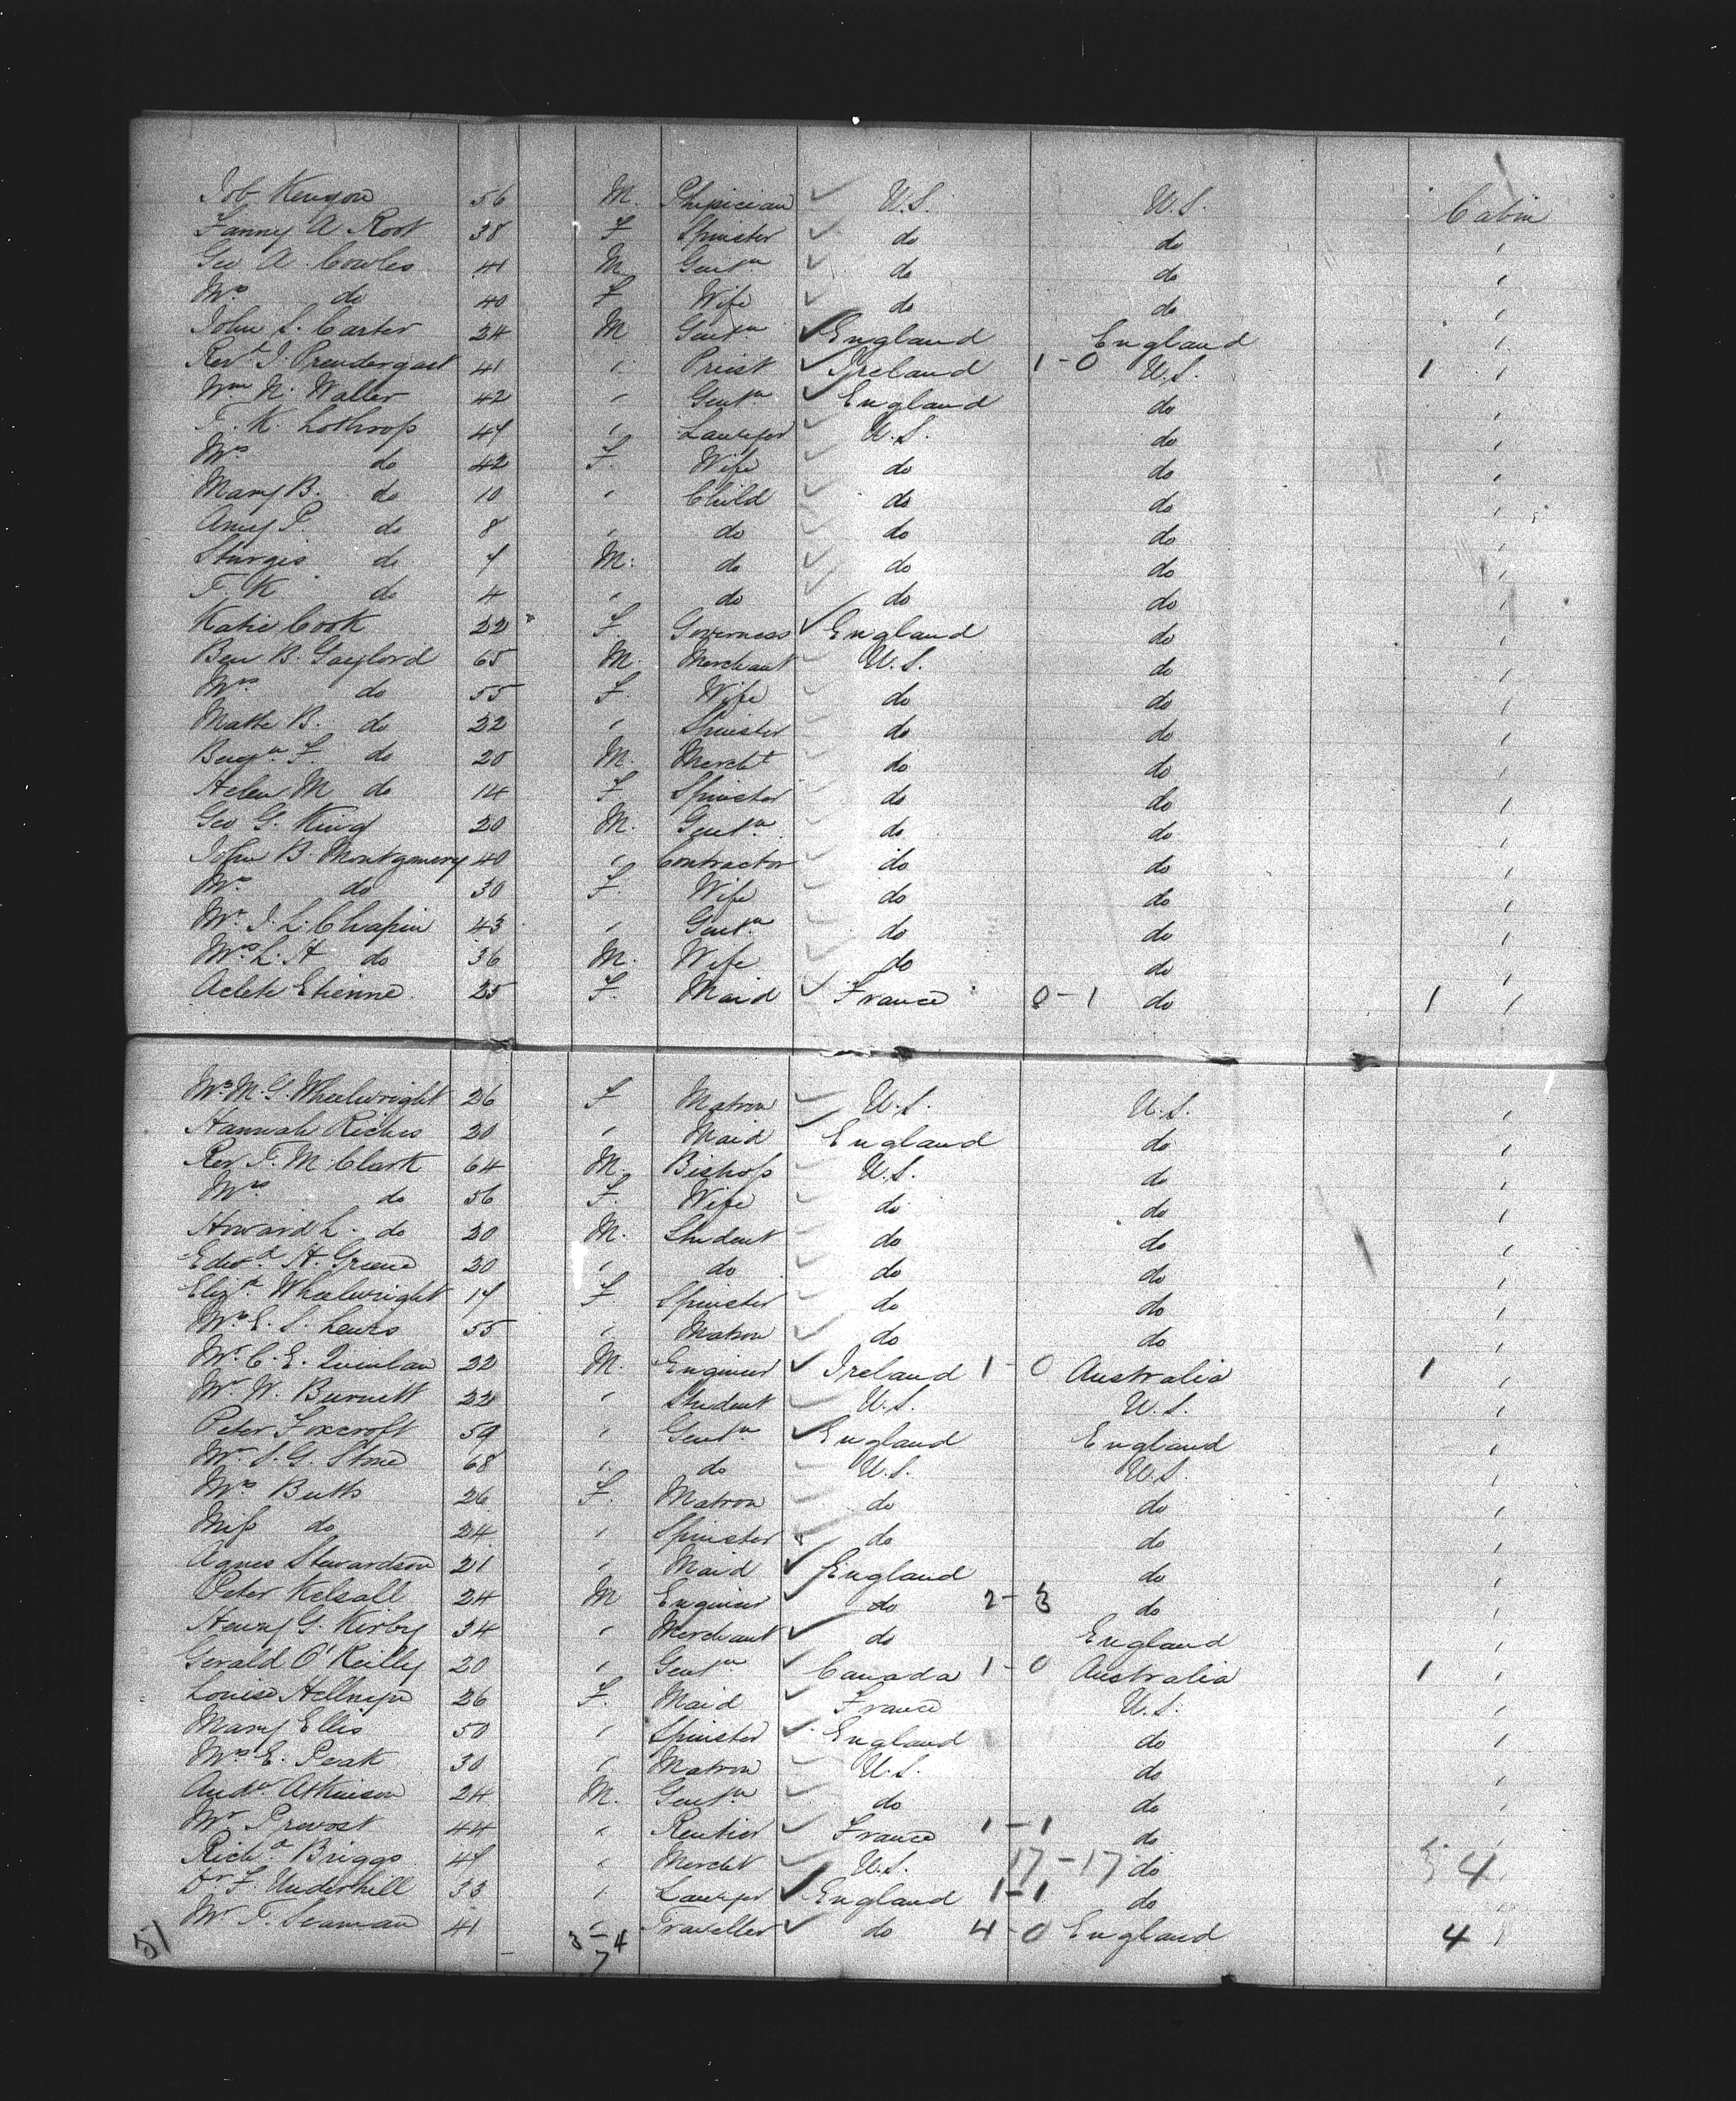 Job Kenyon 56 M. Phisician U.S. U.S. Cabin
Fanny A Root 38 F Spinster do do "
Geo A. Cowles 41 M Gentn do do "
Mrs do 40 F Wife do do "
John S. Carter 24 M Gentn England England "
Revd J. Prendergast 41 " Priest Ireland 1-0 U.S. 1 "
Wm N. Waller 42 " Gentn England do "
T. K. Lothrop 47 " Lawyer U.S. do "
Mrs do 42 F. Wife do do "
Mary B. do 10 " Child do do "
Amy P. do 8 " do do do "
Sturgis do 7 M. do do do "
T. K. do 4 " do do do "
Katie Cook 22 F. Governess England do "
Ben B. Gaylord 65 M. Merchant U.S. do "
Mrs do 55 F. Wife do do "
Matte B. do 22 " Spinster do do "
Benjn F. do 20 M. Mercht do do "
Helen M do 14 F. Spinster do do "
Geo G. King 20 M. Gentn do do "
John B. Montgomery 40 " Contractor do do "
Mrs do 30 F. Wife do do "
Mr. J. L. Chapin 43 " Gentn do do "
Mrs L. H do 36 M. Wife do do "
Aclete Etienne 25 F. Maid France 0-1 do 1 "
Mrs M. G. Wheelwright 26 F Matron U.S. U.S. "
Hannah Riches 20 " Maid England do "
Rev T. M. Clark 64 M. Bishop U.S. do "
Mrs do 56 F. Wife do do "
Howard L. do 20 M. Student do do "
Edwd H. Greene 20 " do do do "
Elizth Wheelwright 17 F. Spinster do do "
Mrs E. S. Lewis 55 " Matron do do "
Mr. C. E. Quinlan 22 M. Engineer Ireland 1-0 Australia 1 "
Mr W. Burnett 22 " Student U.S. U.S. "
Peter Foxcroft 59 " Gentn England England "
Mr S. G. Stone 68 " do U.S. U.S. "
Mrs Butts 26 F. Matron do do "
Miss do 24 " Spinster do do "
Agnes Stewardson 21 " Maid England do "
Peter Kelsall 24 M Engineer do 2-3 do "
Henry G. Kirby 34 " Merchant do England "
Gerald O'Reilly 20 " Gentn Canada 1-0 Australia 1 "
Louise 26 F. Maid France U.S. "
Mary Ellis 50 " Spinster England do "
Mrs E. Peak 30 " Matron U.S. do "
Andw Atkinson 24 M. Gentn do do "
Mr Prevost 44 " Rentier France 1-1 do "
Richd Briggs 47 " Mercht U.S. 17-17 do 4 "
Dr F. Underhill 33 " Lawyer England 1-1 do "
Mr T. Seaman 41 " Traveller do 4-0 England 4 "
51 3-4
7